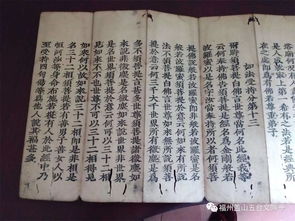 如法受持分第十三
爾時須菩提白佛言世尊當何名此經我等
云何奉持佛告須菩提是經名為金剛般若
波羅蜜以是名字汝當奉持所以者何須菩
提佛說般若波羅蜜即非般若波羅蜜是名
般若波羅蜜須菩提於意云何如來有所說
法不須菩提白佛言世尊如來無所說須菩
提於意云何三千大千世界所有微塵是為
多不須菩提言甚多世尊須菩提諸微塵如
來說非微塵是名微塵如來說世界非世界
是名世界須菩提於意云何可以三十二相
見如來不不也世尊不可以三十二相得見
如來何以故如來說三十二相即是非相是
名三十二相須菩提若有善男子善女人以
恒河沙等身命布施若復有人於此經中乃
至受持四句偈等為他人說其福甚多
福州盖山五台文